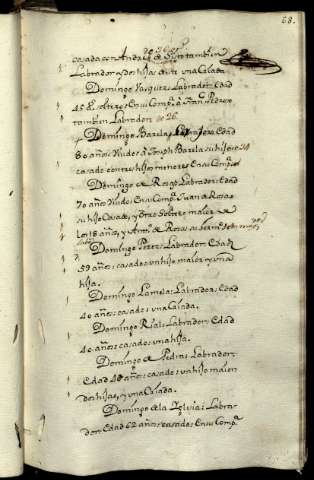 68.
casada con Andres de Soto tambien
Labrador y dos hijas de y una Criada
Domingo Vazquez Labrador Edad
45 Soltero En su Comp.ª a Fran.co Pedro
tambien Labrador de 26
Domingo Barela, Labrador Edad
80 años Viudo a Joseph Barela su hijo de
casado con tres hijos menores En su Comp.ª
Domingo de Rosas Labrador Edad
70 años Viudo En su Comp.ª Juan de Rosas
su hijo Casado, y otro Soltero maior de
los 18 años, y Ant.º de Rosas su herm.º
Domingo Perez Labrador Edad
59 años casado un hijo maior y una
hija.
Domingo Lamela Labrador Edad
40 años casado una Criada.
Domingo Rial Labrador Edad
40 años casado una hija.
Domingo de Pedras Labrador
Edad 40 años casado un hijo maior
dos hijas, y una Criada.
Domingo de la Iglesia Labra-
dor Edad 62 años casado En su Comp.ª